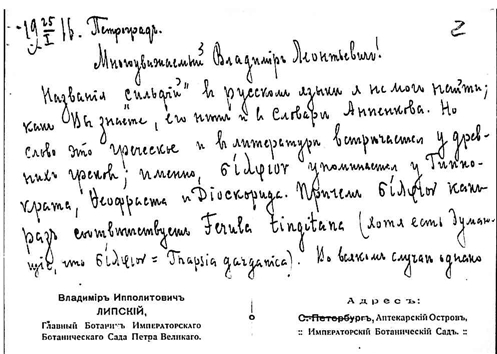 19 25/I 16. Петроградъ.
2
Многоуважаемый Владиміръ Леонтьевичъ!
Названія "сильфій" въ русскомъ языкѣ я не могъ найти;
какъ Вы знаете, его нѣтъ и въ словарѣ Анненкова. Но
слово это греческое и въ литературѣ встрѣчается у древ-
нихъ грековъ; именно, σίλφιον упоминается у Гиппо-
крата, Ѳеофраста и Діоскорида. Причемъ σίλφιον какъ
разъ соотвѣтствуетъ Ferula tingitana (хотя есть думаю-
щіе, что σίλφιον = Thapsia garganica). Во всякомъ случаѣ однако
Владиміръ Ипполитовичъ
ЛИПСКІЙ,
Главный Ботаникъ Императорскаго
Ботаническаго Сада Петра Великаго.
Адресъ:
С.-Петербургъ, Аптекарскій Островъ,
:: Императорскій Ботаническій Садъ. ::